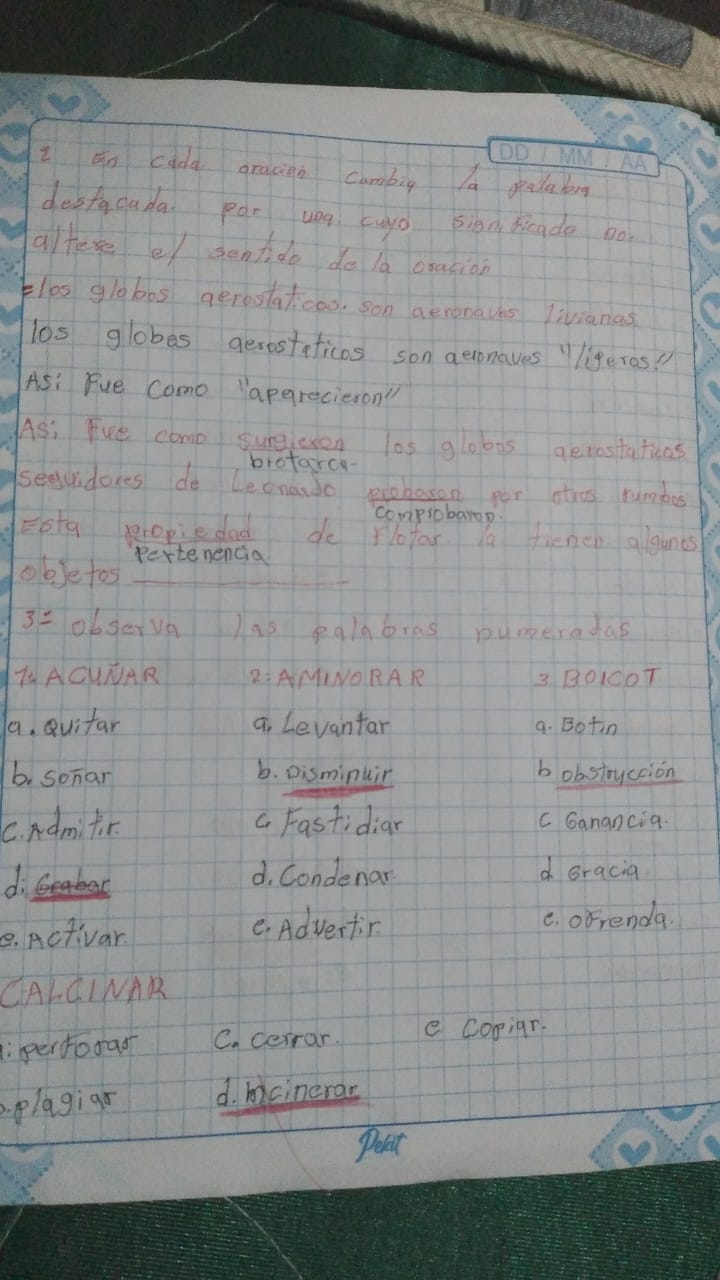 DD / MM / AA
2 En cada oración cambia la palabra
destacada por una cuyo significado no
altere el sentido de la oración
=los globos aerostaticos. son aeronaves livianas
los globos aerostaticos son aeronaves "ligeros"
Asi Fue como "aparecieron"
Asi Fue como surgieron los globos aerostaticos
brotaron
seguidores de Leonardo probaron por otros rumbos
comprobaron.
Esta propiedad de Flotar la tienen algunos
Pertenencia
objetos
3= observa las palabras numeradas
1: ACUÑAR 2: AMINORAR 3 BOICOT
a. Quitar a. Levantar a. Botin
b. Soñar b. Disminuir b obstrucción
C. Admitir. C Fastidiar C Ganancia.
d: Grabar d. Condenar d Gracia
e. Activar. e. Advertir. e. ofrenda.
CALCINAR
: perforar C. cerrar. e Copiar.
.plagiar d. incinerar
Pekit